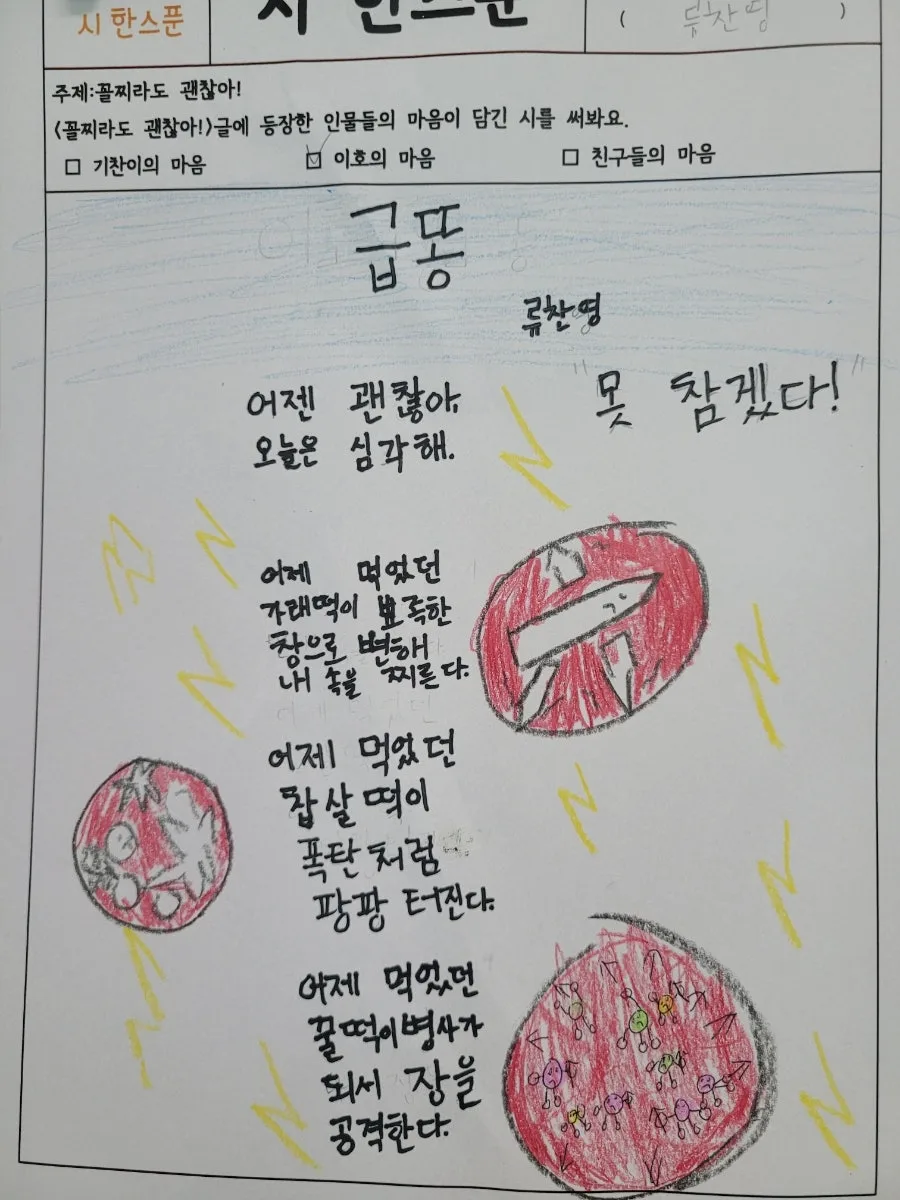 시 한스푼
시 한스푼
( 류찬영 )
주제:꼴찌라도 괜찮아!
<꼴찌라도 괜찮아!>글에 등장한 인물들의 마음이 담긴 시를 써봐요.
□ 기찬이의 마음 ☑ 이호의 마음 □ 친구들의 마음
급똥
류찬영
"못 참겠다!"
어젠 괜찮아.
오늘은 심각해.
어제 먹었던
가래떡이 뾰족한
창으로 변해
내 속을 찌른다.
어제 먹었던
찹쌀떡이
폭탄처럼
팡팡 터진다.
어제 먹었던
꿀떡이병사가
되서 장을
공격한다.